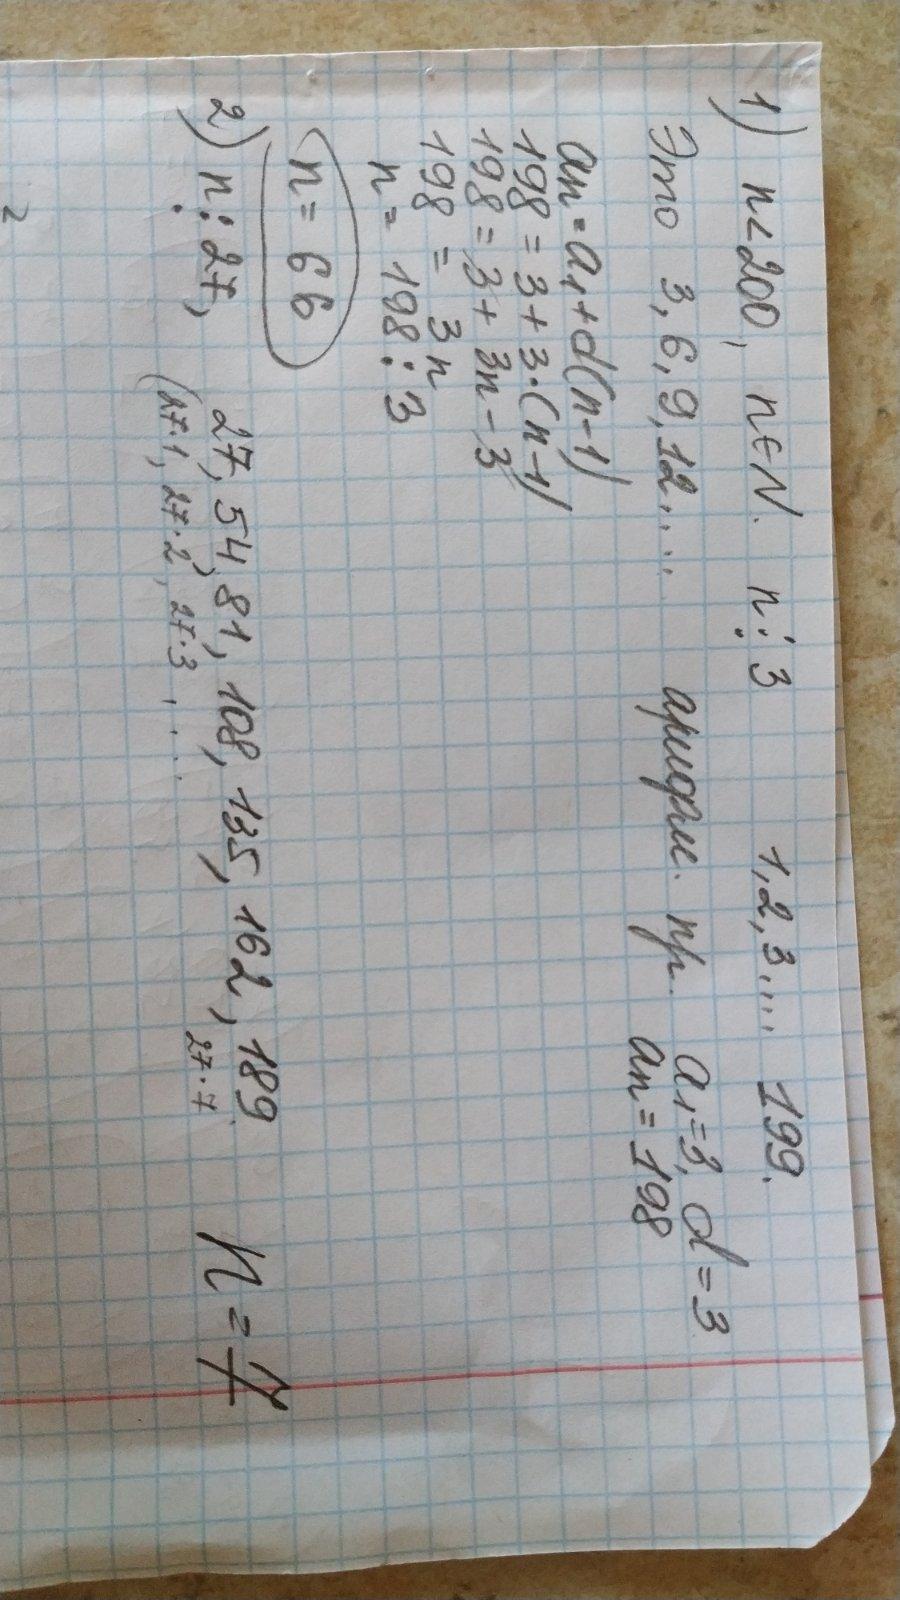 1) n<200, n∈N. n⋮3 1,2,3,... 199.
Это 3,6,9,12.... арифм. пр. a₁=3, d=3
an=198
an=a₁+d(n-1)
198=3+3·(n-1)
198=3+3n-3
198=3n
n=198:3
n=66
2) n⋮27, 27, 54, 81, 108, 135, 162, 189 n=7
(27·1, 27·2, 27·3, .... 27·7
2